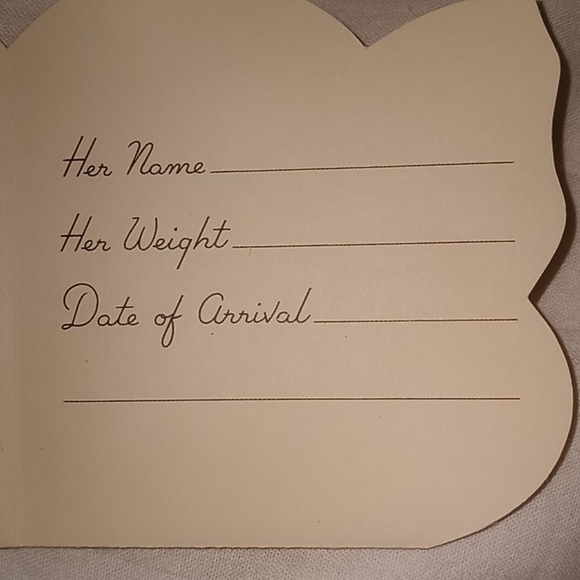 Her Name
Her Weight
Date of Arrival